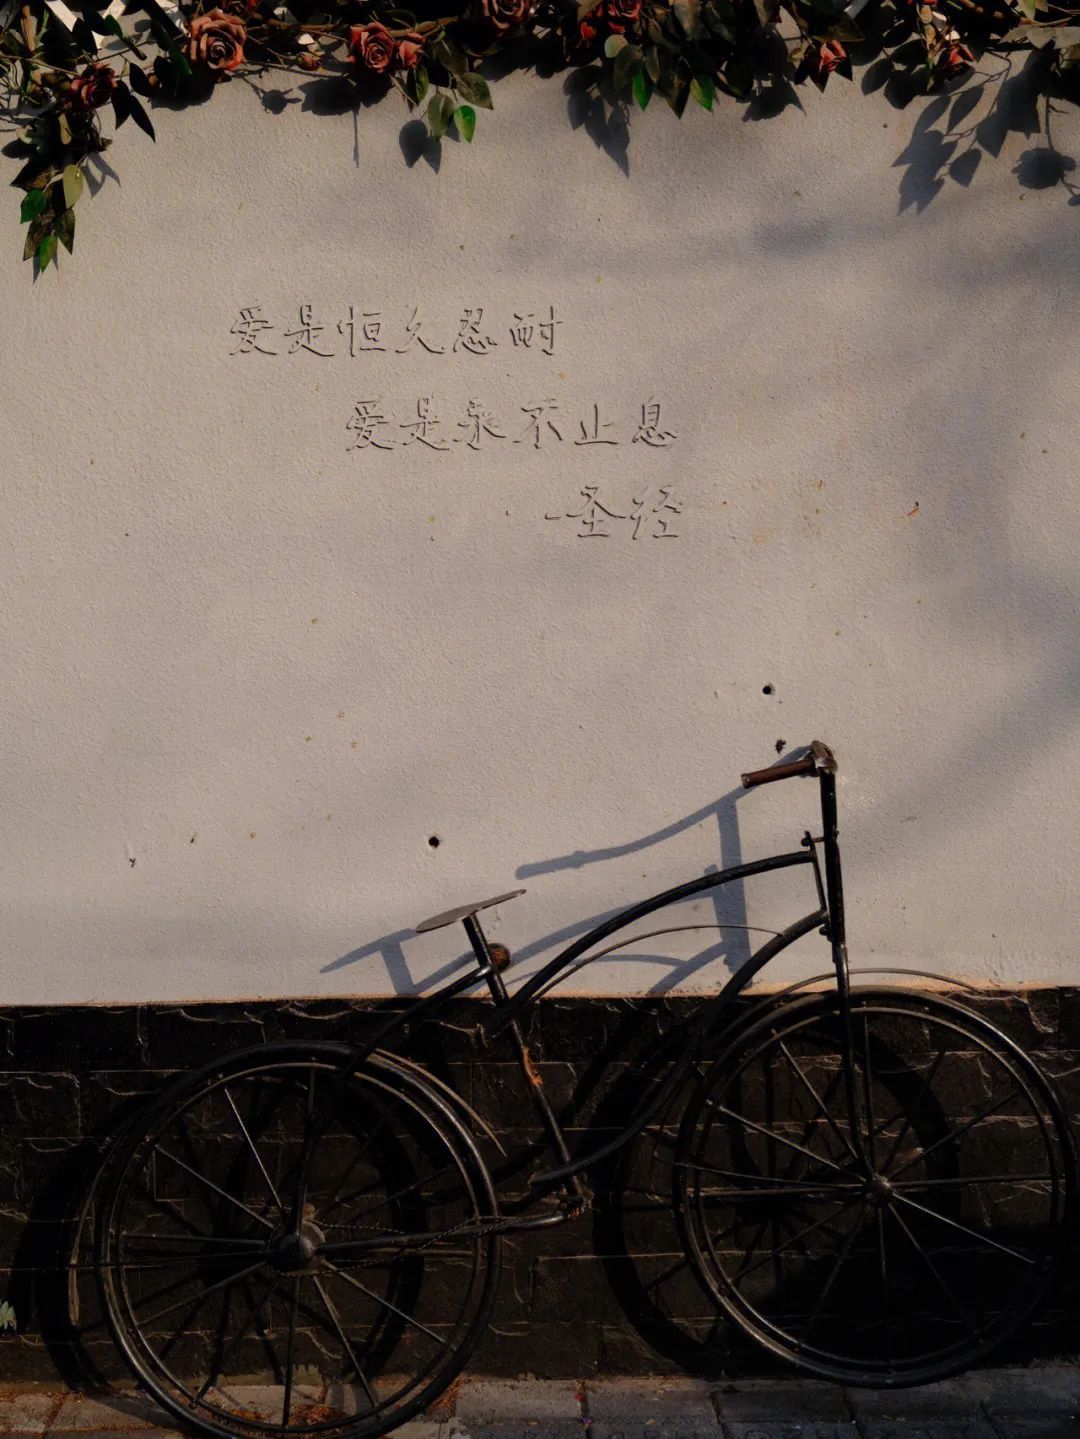 爱是恒久忍耐
爱是永不止息
--圣经